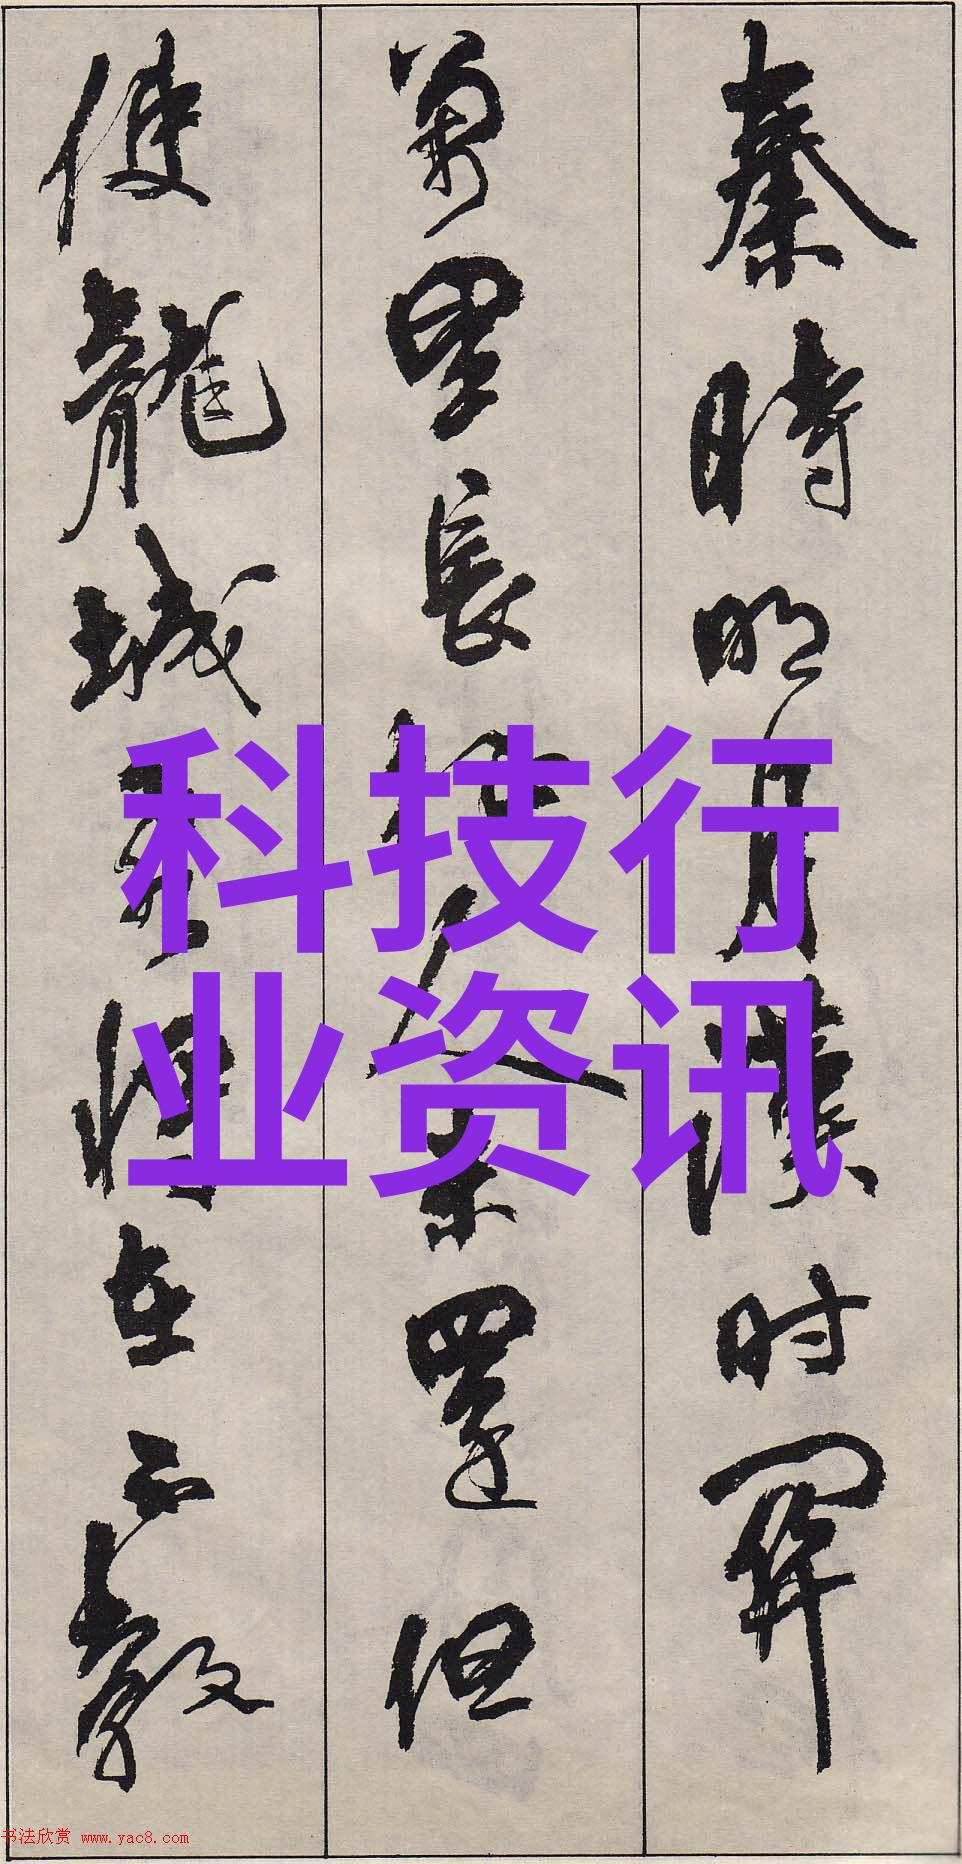 秦時明月漢时關
萬里長征人未還但
使龍城飛将在不教
科技行
业资讯
书法欣赏 www.yac8.com